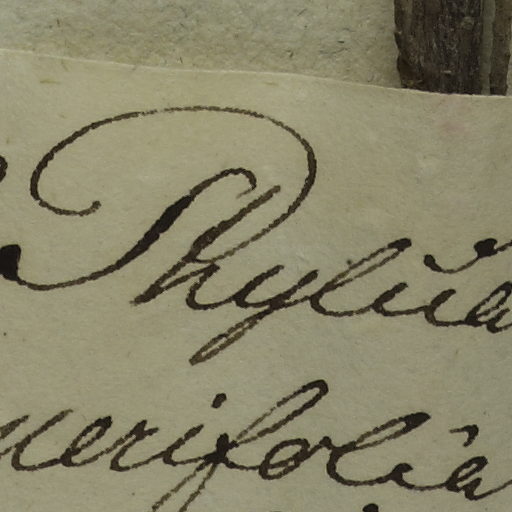 Phylica
nerifolia